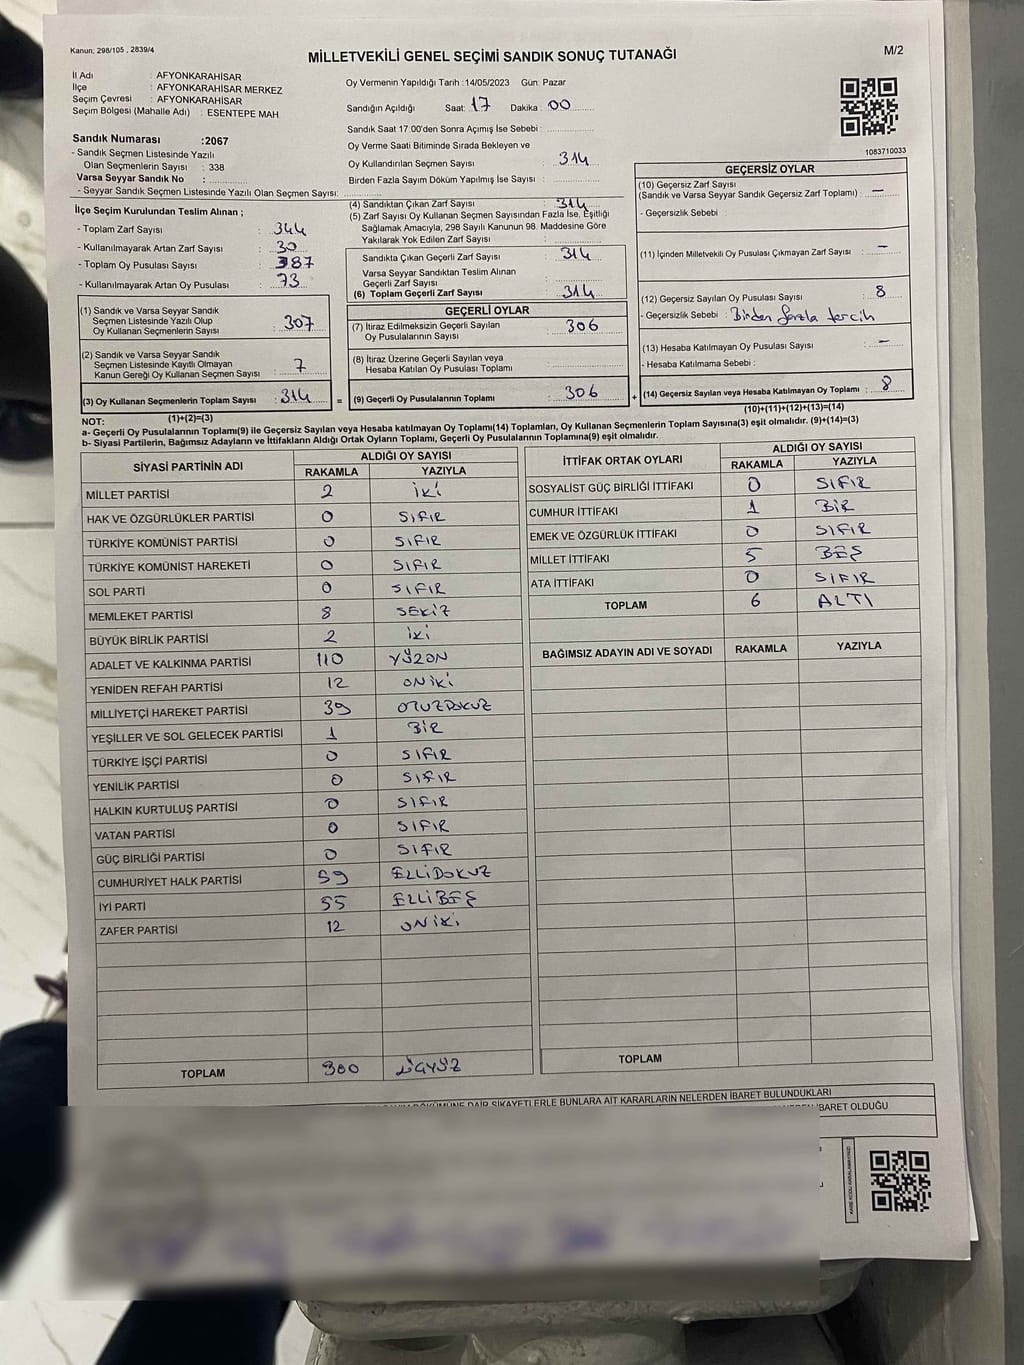 Kanun; 298/105 , 2839/4
MİLLETVEKİLİ GENEL SEÇİMİ SANDIK SONUÇ TUTANAĞI
M/2
İl Adı : AFYONKARAHİSAR
İlçe : AFYONKARAHİSAR MERKEZ
Seçim Çevresi : AFYONKARAHİSAR
Seçim Bölgesi (Mahalle Adı) : ESENTEPE MAH.
Sandık Numarası :2067
- Sandık Seçmen Listesinde Yazılı
Olan Seçmenlerin Sayısı : 338
Varsa Seyyar Sandık No :
- Seyyar Sandık Seçmen Listesinde Yazılı Olan Seçmen Sayısı:
Oy Vermenin Yapıldığı Tarih :14/05/2023 Gün: Pazar
Sandığın Açıldığı Saat: 17 Dakika : 00
Sandık Saat 17:00'den Sonra Açımış İse Sebebi :
Oy Verme Saati Bitiminde Sırada Bekleyen ve
Oy Kullandırılan Seçmen Sayısı : 314
Birden Fazla Sayım Döküm Yapılmış İse Sayısı :
1083710033
İlçe Seçim Kurulundan Teslim Alınan ;
- Toplam Zarf Sayısı : 344
- Kullanılmayarak Artan Zarf Sayısı : 30
- Toplam Oy Pusulası Sayısı : 387
- Kullanılmayarak Artan Oy Pusulası : 73
(1) Sandık ve Varsa Seyyar Sandık
Seçmen Listesinde Yazılı Olup
Oy Kullanan Seçmenlerin Sayısı : 307
(2) Sandık ve Varsa Seyyar Sandık
Seçmen Listesinde Kayıtlı Olmayan
Kanun Gereği Oy Kullanan Seçmen Sayısı : 7
(3) Oy Kullanan Seçmenlerin Toplam Sayısı : 314
(1)+(2)=(3)
(4) Sandıktan Çıkan Zarf Sayısı : 314
(5) Zarf Sayısı Oy Kullanan Seçmen Sayısından Fazla İse, Eşitliği
Sağlamak Amacıyla, 298 Sayılı Kanunun 98. Maddesine Göre
Yakılarak Yok Edilen Zarf Sayısı :
Sandıkta Çıkan Geçerli Zarf Sayısı : 314
Varsa Seyyar Sandıktan Teslim Alınan
Geçerli Zarf Sayısı :
(6) Toplam Geçerli Zarf Sayısı : 314
GEÇERLİ OYLAR
(7) İtiraz Edilmeksizin Geçerli Sayılan
Oy Pusulalarının Sayısı : 306
(8) İtiraz Üzerine Geçerli Sayılan veya
Hesaba Katılan Oy Pusulası Toplamı :
= (9) Geçerli Oy Pusulalarının Toplamı : 306
GEÇERSİZ OYLAR
(10) Geçersiz Zarf Sayısı
(Sandık ve Varsa Seyyar Sandık Geçersiz Zarf Toplamı) : —
- Geçersizlik Sebebi :
(11) İçinden Milletvekili Oy Pusulası Çıkmayan Zarf Sayısı : —
(12) Geçersiz Sayılan Oy Pusulası Sayısı : 8
- Geçersizlik Sebebi : Birden fazla tercih
(13) Hesaba Katılmayan Oy Pusulası Sayısı : —
- Hesaba Katılmama Sebebi :
+ (14) Geçersiz Sayılan veya Hesaba Katılmayan Oy Toplamı : 8
(10)+(11)+(12)+(13)=(14)
NOT:
a- Geçerli Oy Pusulalarının Toplamı(9) ile Geçersiz Sayılan veya Hesaba katılmayan Oy Toplamı(14) Toplamları, Oy Kullanan Seçmenlerin Toplam Sayısına(3) eşit olmalıdır. (9)+(14)=(3)
b- Siyasi Partilerin, Bağımsız Adayların ve İttifakların Aldığı Ortak Oyların Toplamı, Geçerli Oy Pusulalarının Toplamına(9) eşit olmalıdır.
SİYASİ PARTİNİN ADI ALDIĞI OY SAYISI
RAKAMLA YAZIYLA
MİLLET PARTİSİ 2 İKİ
HAK VE ÖZGÜRLÜKLER PARTİSİ 0 SIFIR
TÜRKİYE KOMÜNİST PARTİSİ 0 SIFIR
TÜRKİYE KOMÜNİST HAREKETİ 0 SIFIR
SOL PARTİ 0 SIFIR
MEMLEKET PARTİSİ 8 SEKİZ
BÜYÜK BİRLİK PARTİSİ 2 İKİ
ADALET VE KALKINMA PARTİSİ 110 YÜZON
YENİDEN REFAH PARTİSİ 12 ONİKİ
MİLLİYETÇİ HAREKET PARTİSİ 39 OTUZDOKUZ
YEŞİLLER VE SOL GELECEK PARTİSİ 1 BİR
TÜRKİYE İŞÇİ PARTİSİ 0 SIFIR
YENİLİK PARTİSİ 0 SIFIR
HALKIN KURTULUŞ PARTİSİ 0 SIFIR
VATAN PARTİSİ 0 SIFIR
GÜÇ BİRLİĞİ PARTİSİ 0 SIFIR
CUMHURİYET HALK PARTİSİ 59 ELLİDOKUZ
İYİ PARTİ 55 ELLİBEŞ
ZAFER PARTİSİ 12 ONİKİ
TOPLAM 300 ÜÇYÜZ
İTTİFAK ORTAK OYLARI ALDIĞI OY SAYISI
RAKAMLA YAZIYLA
SOSYALİST GÜÇ BİRLİĞİ İTTİFAKI 0 SIFIR
CUMHUR İTTİFAKI 1 BİR
EMEK VE ÖZGÜRLÜK İTTİFAKI 0 SIFIR
MİLLET İTTİFAKI 5 BEŞ
ATA İTTİFAKI 0 SIFIR
TOPLAM 6 ALTI
BAĞIMSIZ ADAYIN ADI VE SOYADI RAKAMLA YAZIYLA
TOPLAM
DÖKÜMÜNE DAİR ŞİKAYETLERLE BUNLARA AİT KARARLARIN NELERDEN İBARET BULUNDUKLARI
İBARET OLDUĞU